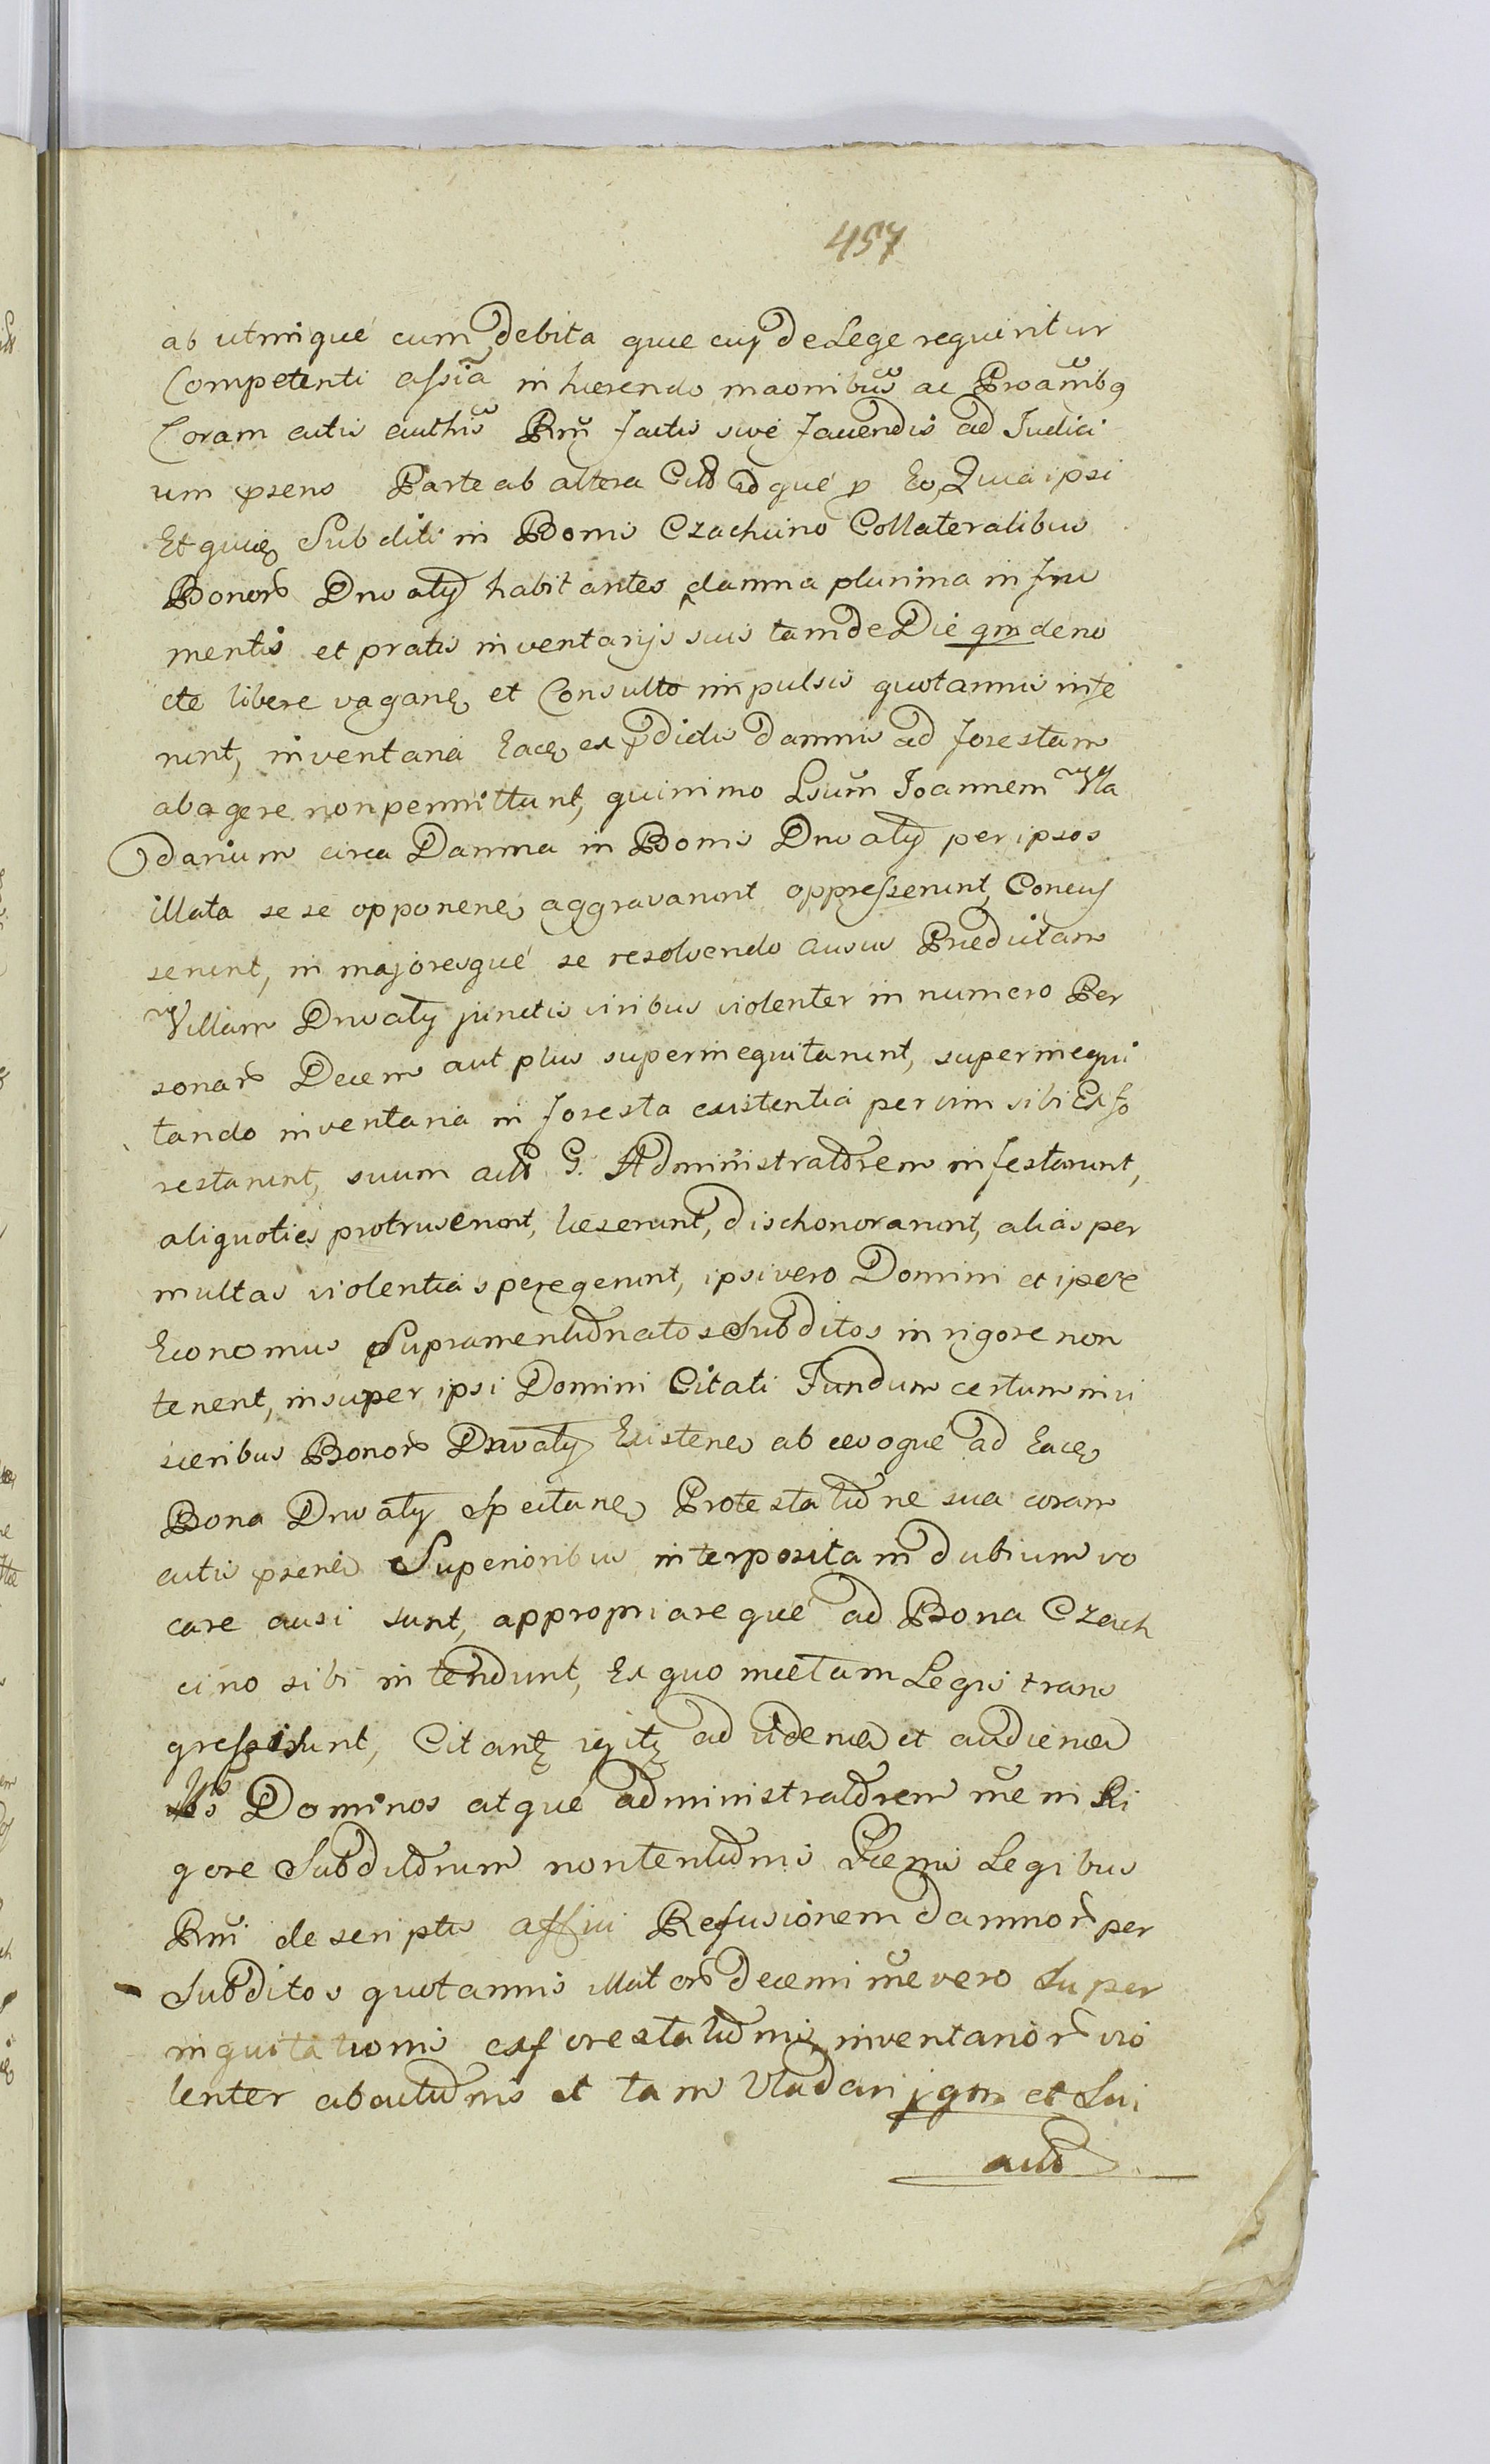 457
ab utrinqué cum debita quæ cuj de Lege requiritur
Competenti assiã in hærendo maonibus ac Proambq
Coram actis authis Rm̃ factis sivé faciendis ad Iudici
um præns Parte ab altera Citõ idqué p Eo, Quia ipsi
Et quiq Subditi in Bonis Czachcino Collateralibus
Bonor Drwaly habitantes damna plurima in fru
mentis et pratis inventarijs suis tam de Dié qm de no
cte libere vagane et Consulto impulsis quotannis infe
runt, inventaria Eaq ex pdictis Damnis ad forestam
abagere non permittunt, quinimo Lsum̃ Ioannem Wla
darium circa Damna in Bonis Drwaly per ipsos
illata se se opponene aggravarunt oppresserunt, Concuſ
serunt, in majoresqué se resolvendo ausus Prædictam
Villam Drwaly junctis viribus violenter in numero Per
sonar Decem aut plus superinequitarunt, superinequi
tando inventaria in foresta existentia per vim sibi Exfo
restarunt, suum actõ G. Administratorem infestarunt,
aliquoties protruserunt, læserunt, dischonorarunt, aliàs per
multas violentias peregerunt, ipsi vero Domini et ipse
Economus Supramentionatos Subditos in rigore non
tenent, insuper ipsi Domini Citati Fundum certum in vi
sceribus Bonor Drwaly Existene ab ævoqué ad Eaq
Bona Drwaly Spectane Protestatione sua coram
actis præne Superioribus interposita in dubium vo
care ausi sunt, appropriarequé ad Bona Czach
cino sibi intendunt, Ex quo mætam Legis trans
gressi sunt, Citant igit ad videnda et audienda
Ipsos Dominos atqué administratorem me in Ri
gore Subditorum non tentionis Pæenis Legibus
Rm̃i descriptis affici Refusionem damnor per
Subditos quotannis illator decerni me vero Super
inquitationis exforestationis inventarior vio
lenter abactionis et tam Vladarij qm et Sui
actõ